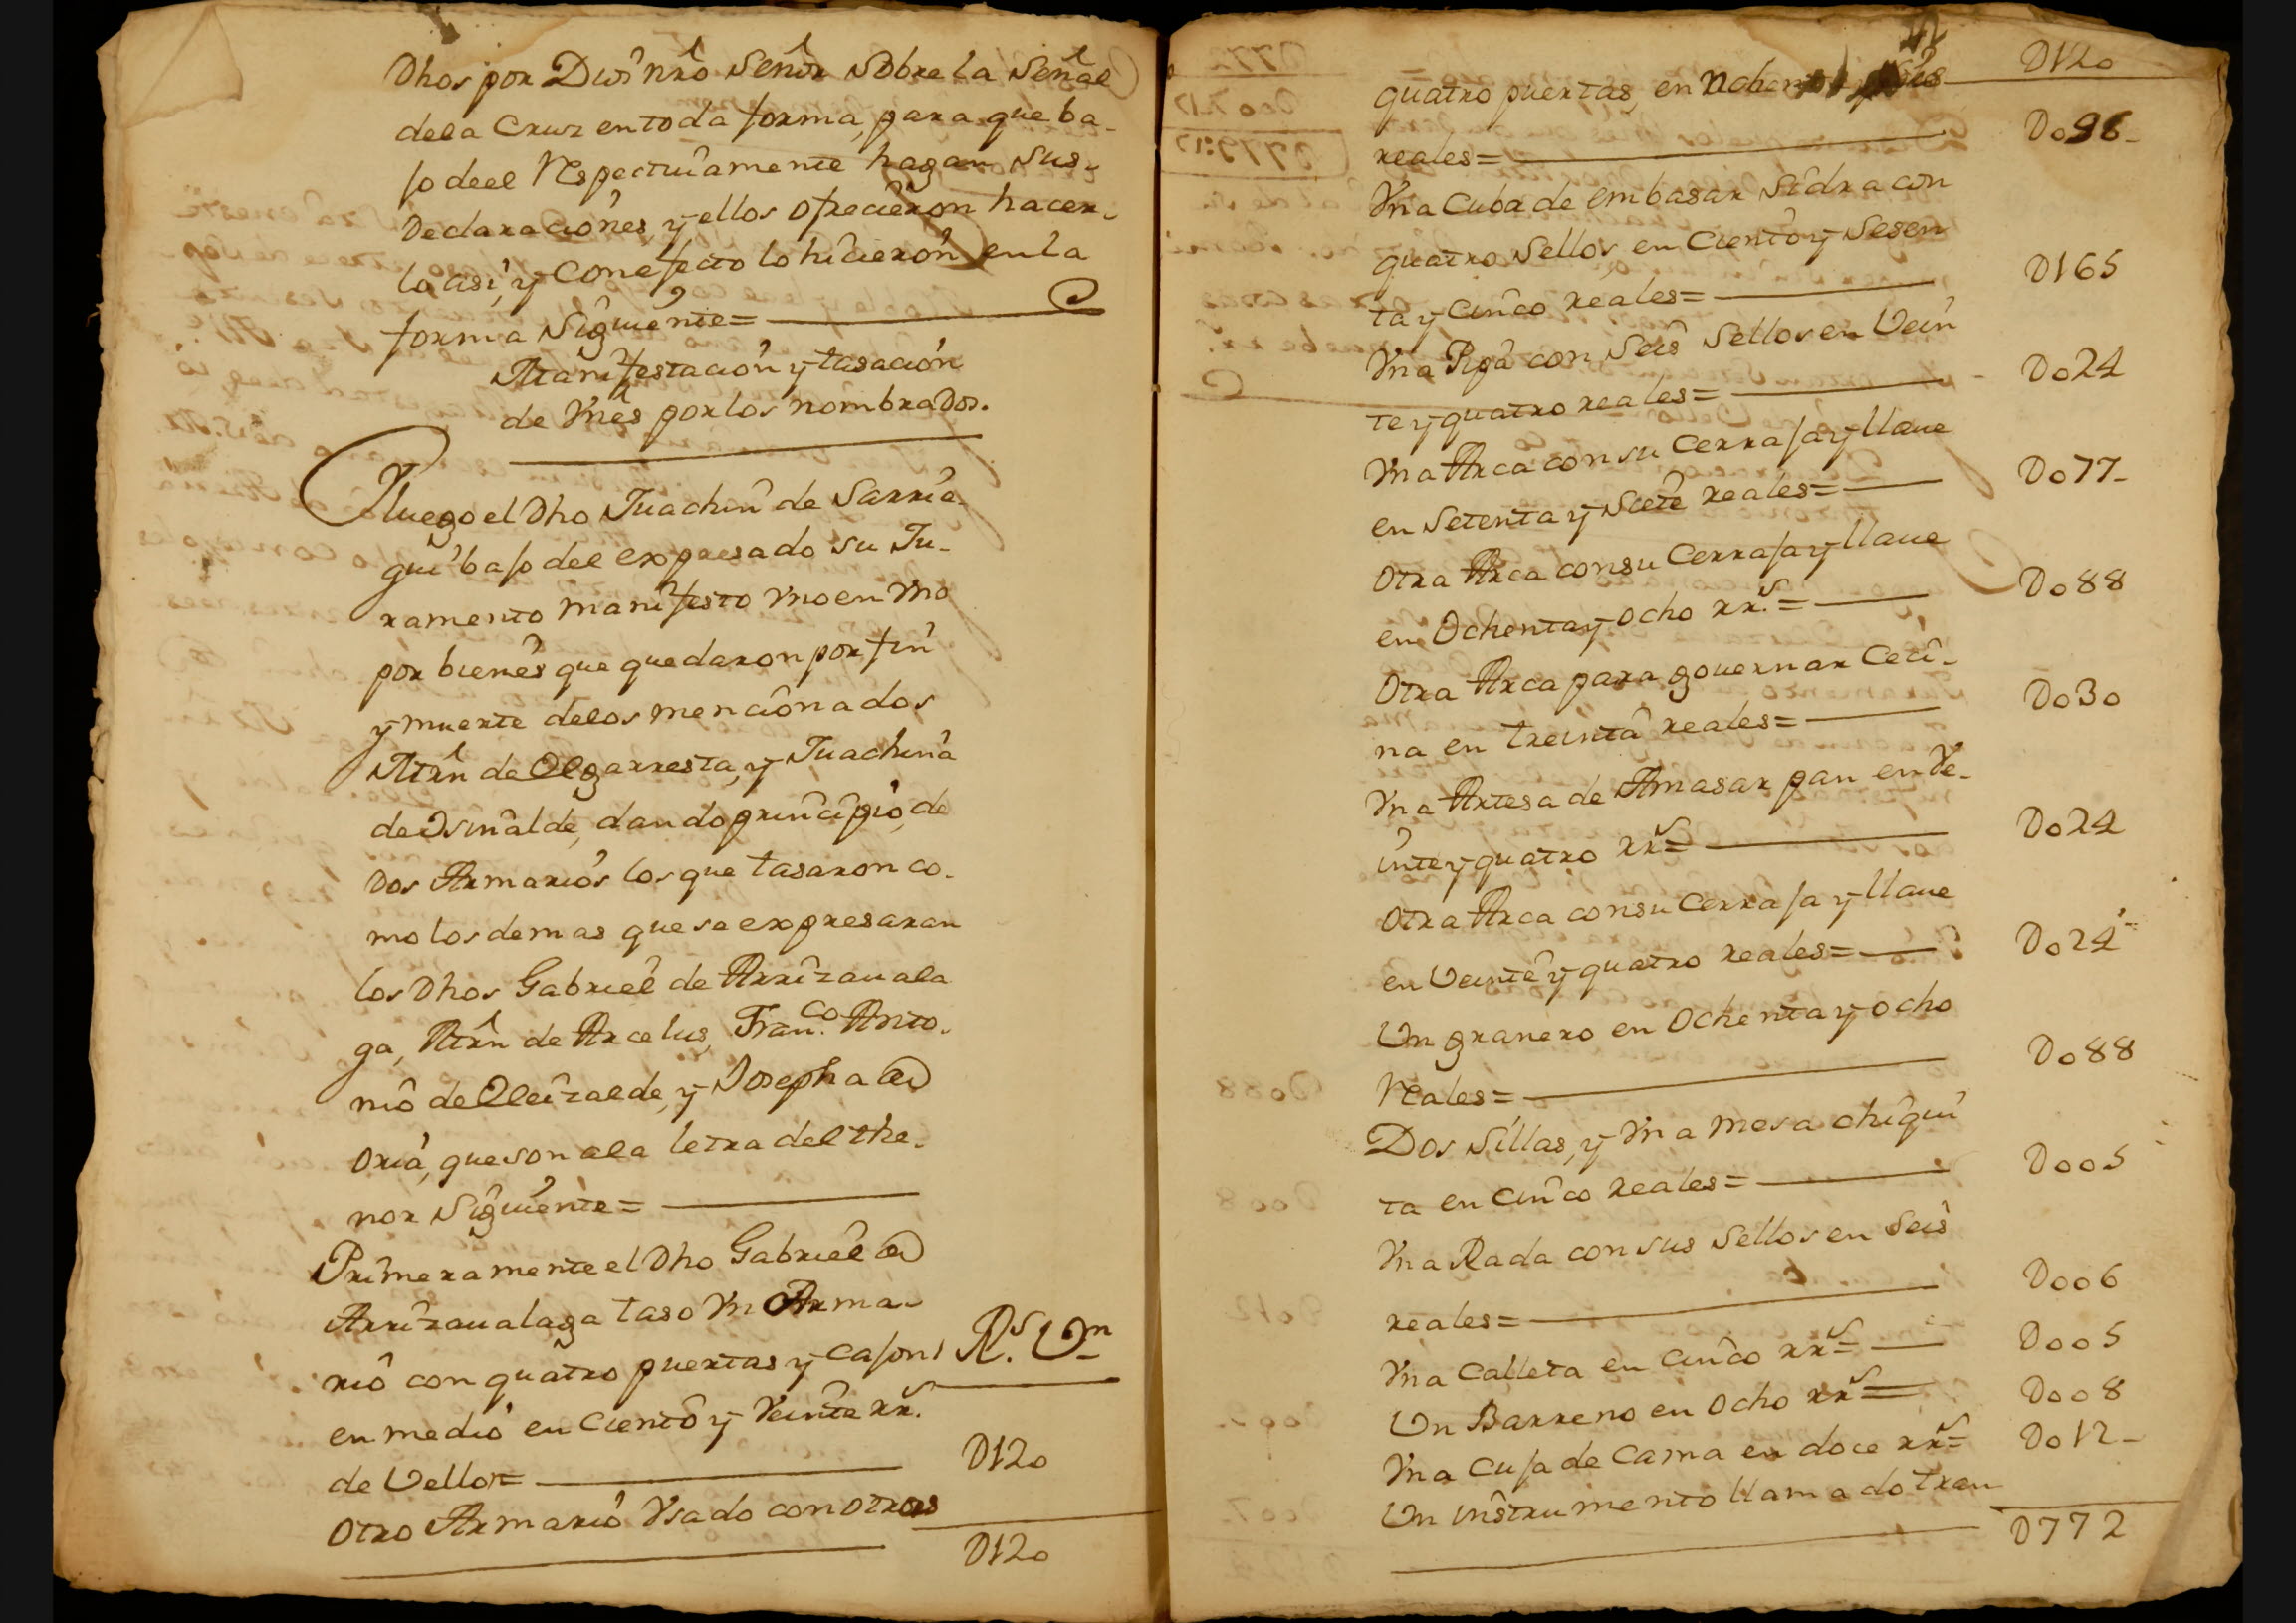 Dhos por Dios nrô Señor sobre la Señal
dela Cruz en toda forma, para que ba-
jo deel Respectiuamente hagan sus
Declaraciones, y ellos ofrecieron hacer-
lo asi, y con efecto lo hicieron en la
forma Siguiente=
Manifestacion y tasacion
de Vnes por los nombrados.
Y luego el Dho Juachin de Sarrie-
gui bajo del expresado su Ju-
ramento manifesto Vno en Vno
por bienes que quedaron por fin
y muerte delos mencionados
Mrn de Olgarresta, y Juachina
de Osinalde, dando principio, de
Dos Armarios los que tasaron co-
mo los demas que se expresaran
los Dhos Gabriel de Arrizauala
ga, Mrn de Arcelus, Fran.co Anto-
nio de Oleizalde, y Josepha de
Oria, que son ala letra del the-
nor Siguiente=
Primeramente el Dho Gabriel de
Arrizaualaga taso Vn Arma-
rio con quatro puertas y cajon R.s Vn
en medio en Ciento y Veinte rr.s
de Vellon= D120
Otro Armario Vsado con otras
D120
D120
quatro puertas, en Ochenta y seis
reales= D096-
Vna Cuba de embasar Sidra con
quatro Sellos, en Ciento y Sesen
ta y Cinco reales= D165
Vna Pipa con Seis Sellos en Vein
te y quatro reales= D024
Vna Arca con su Cerraja y llaue
en Setenta y Siete reales= D077-
Otra Arca con su Cerraja y llaue
en Ochenta y Ocho rr.s= D088
Otra Arca para gouernar Ceci-
na en treinta reales= D030
Vna Artesa de Amasar pan en Ve-
inte y quatro rr.s= D024
Otra Arca con su Cerraja y llaue
en Veinte y quatro reales= D024
Un granero en Ochenta y Ocho
Reales= D088
Dos Sillas, y Vna mesa chiqui
ta en Cinco reales= D005
Vna Rada con sus Sellos en Seis
reales= D006
Vna Calleta en Cinco rr.s= D005
Un Barreno en Ocho rr.s= D008
Vna Cuja de Cama en doce rr.s= D012-
Un instrumento llamado tran
D772